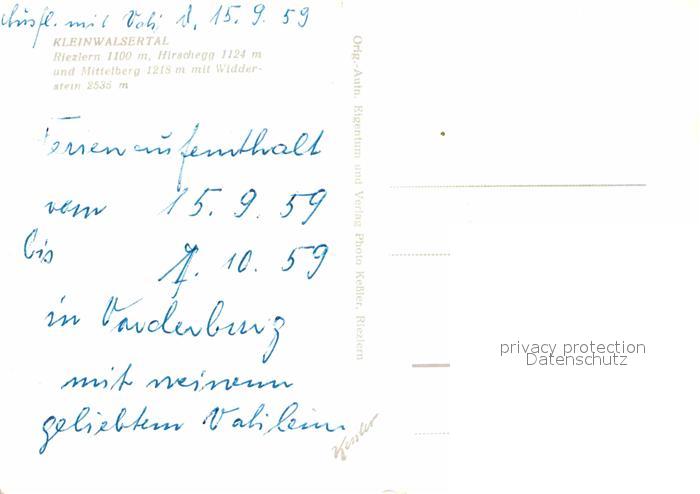 Ausfl. mit Vati, d. 15.9.59
KLEINWALSERTAL
Riezlern 1100 m, Hirschegg 1124 m
und Mittelberg 1218 m mit Widder-
stein 2536 m
Ferienaufenthalt
vom 15. 9. 59
bis 7. 10. 59
in Vorderburg
mit meinem
geliebtem Vatilein
Orig.-Aufn. Eigentum und Verlag Photo Keßler, Riezlern
Kessler
privacy protection
Datenschutz